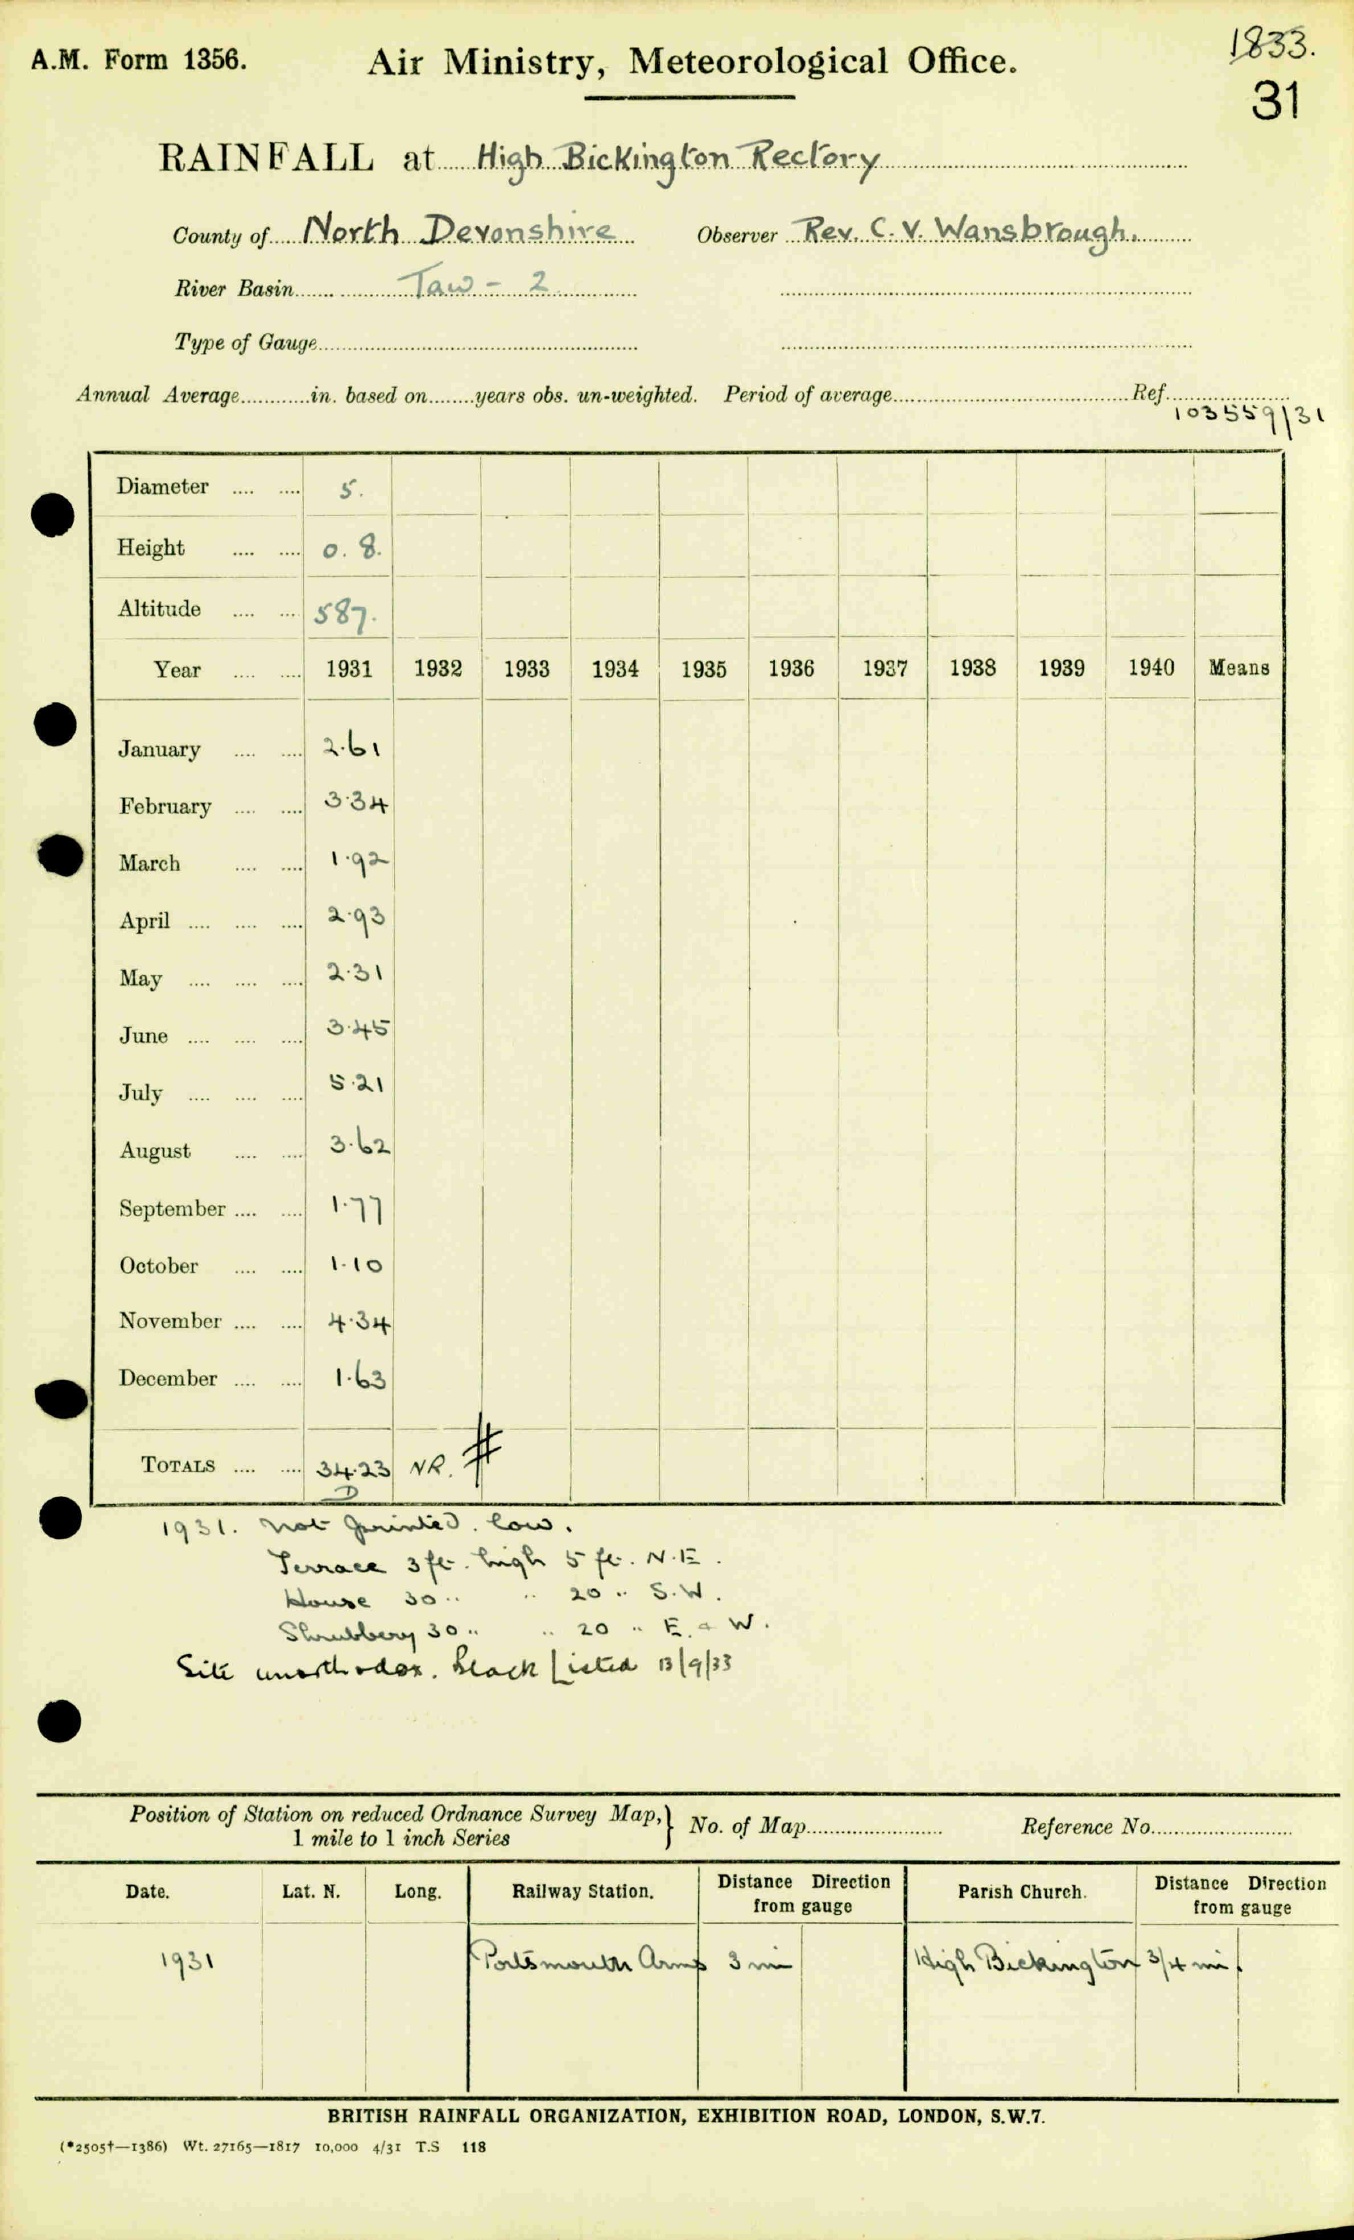 A.M. Form 1356.
Air Ministry, Meteorological Office.
1833.
31
RAINFALL at High Bickington Rectory
County of North Devonshire Observer Rev. C. V. Wansbrough.
River Basin Taw - 2
Type of Gauge
Annual Average in. based on years obs. un-weighted. Period of average Ref.
103559/31
Diameter 5.
Height 0. 8.
Altitude 587.
Year 1931 1932 1933 1934 1935 1936 1937 1938 1939 1940 Means
January 2.61
February 3.34
March 1.92
April 2.93
May 2.31
June 3.45
July 5.21
August 3.62
September 1.77
October 1.10
November 4.34
December 1.63
TOTALS 34.23 NR. #
D
1931. Not printed. low.
Terrace 3 ft. high 5 ft. N.E.
House 30 " " 20 " S.W.
Shrubbery 30 " " 20 " E. & W.
Site unorthodox. Black Listed 13/9/33
Position of Station on reduced Ordnance Survey Map, } No. of Map Reference No.
1 mile to 1 inch Series
Date. Lat. N. Long. Railway Station. Distance Direction from gauge Parish Church. Distance Direction from gauge
1931 Portsmouth Arms 3 mi High Bickington 3/4 mi.
BRITISH RAINFALL ORGANIZATION, EXHIBITION ROAD, LONDON, S.W.7.
(*2505†—1386) Wt. 27165—1817 10,000 4/31 T.S 118